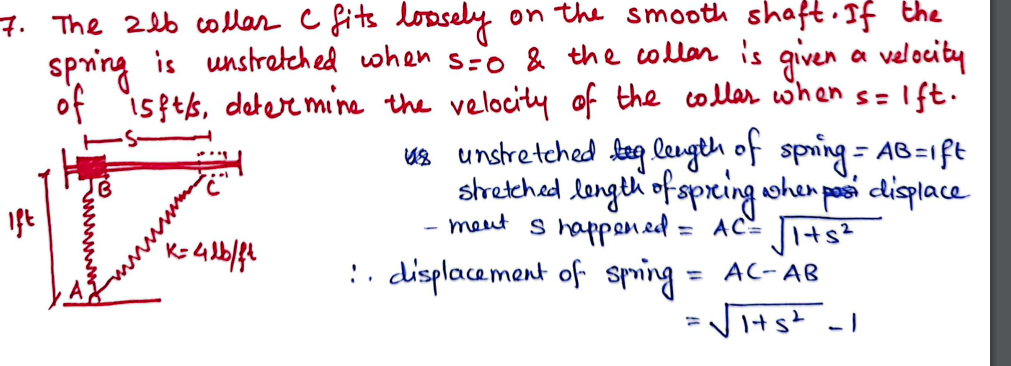 7. The 2lb collar C fits loosely on the smooth shaft. If the
spring is unstretched when s=0 & the collar is given a velocity
of 15ft/s, determine the velocity of the collar when s = 1ft.
S
unstretched length of spring = AB=1ft
B
C
stretched length of spring when displace
1ft
- ment s happened = AC = √1+s²
K= 4lb/ft
∴ displacement of spring = AC-AB
A
= √1+s² -1